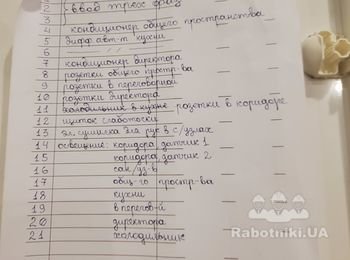 2 ввод трех фаз
3
4 кондиционер общего пространства
5 Дифф авт-т кухни
6 // //
7 кондиционер директора
8 розетки общего простр-ва
9 розетки в переговорной
10 розетки директора
11 холодильник в кухне розетки в коридоре
12 щиток слаботочки
13 эл. сушилка для рук в с/узлах
14 освещение: коридора, датчик 1
15 коридора, датчик 2
16 сан/уз-в
17 общ-го простр-ва
18 кухни
19 в перегов-й
20 директора
21 холодильник
Rabotniki.UA